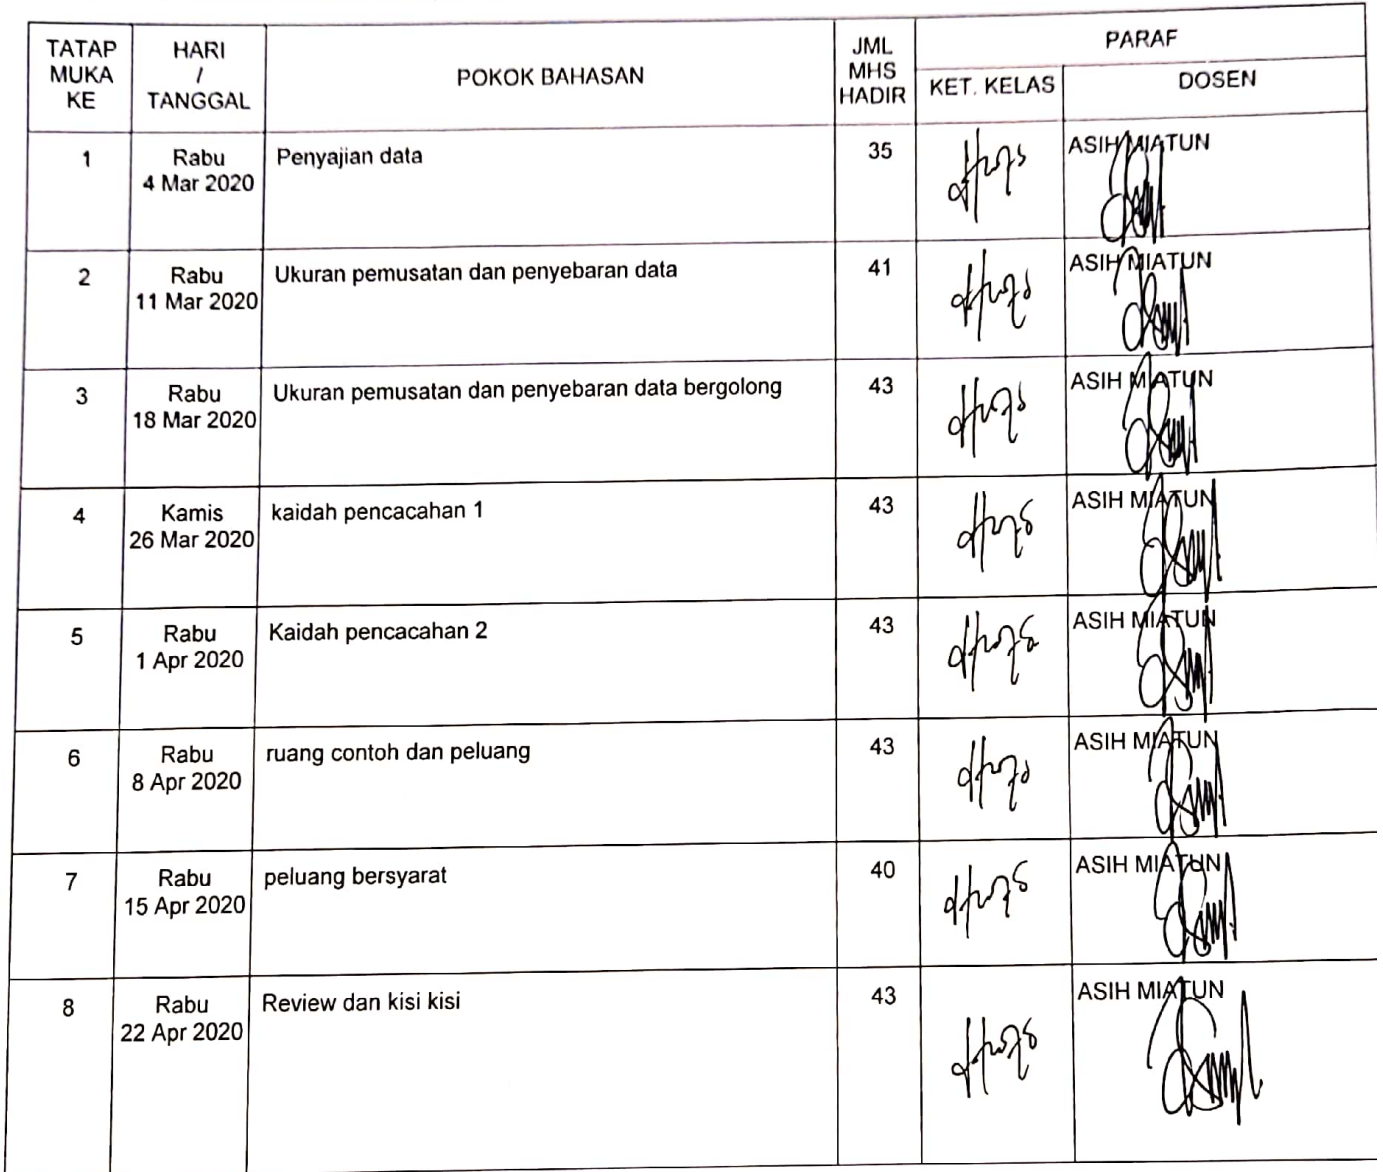 TATAP MUKA KE
HARI / TANGGAL
POKOK BAHASAN
JML MHS HADIR
PARAF
KET. KELAS
DOSEN
1
Rabu
4 Mar 2020
Penyajian data
35
ASIH MIATUN
2
Rabu
11 Mar 2020
Ukuran pemusatan dan penyebaran data
41
ASIH MIATUN
3
Rabu
18 Mar 2020
Ukuran pemusatan dan penyebaran data bergolong
43
ASIH MIATUN
4
Kamis
26 Mar 2020
kaidah pencacahan 1
43
ASIH MIATUN
5
Rabu
1 Apr 2020
Kaidah pencacahan 2
43
ASIH MIATUN
6
Rabu
8 Apr 2020
ruang contoh dan peluang
43
ASIH MIATUN
7
Rabu
15 Apr 2020
peluang bersyarat
40
ASIH MIATUN
8
Rabu
22 Apr 2020
Review dan kisi kisi
43
ASIH MIATUN